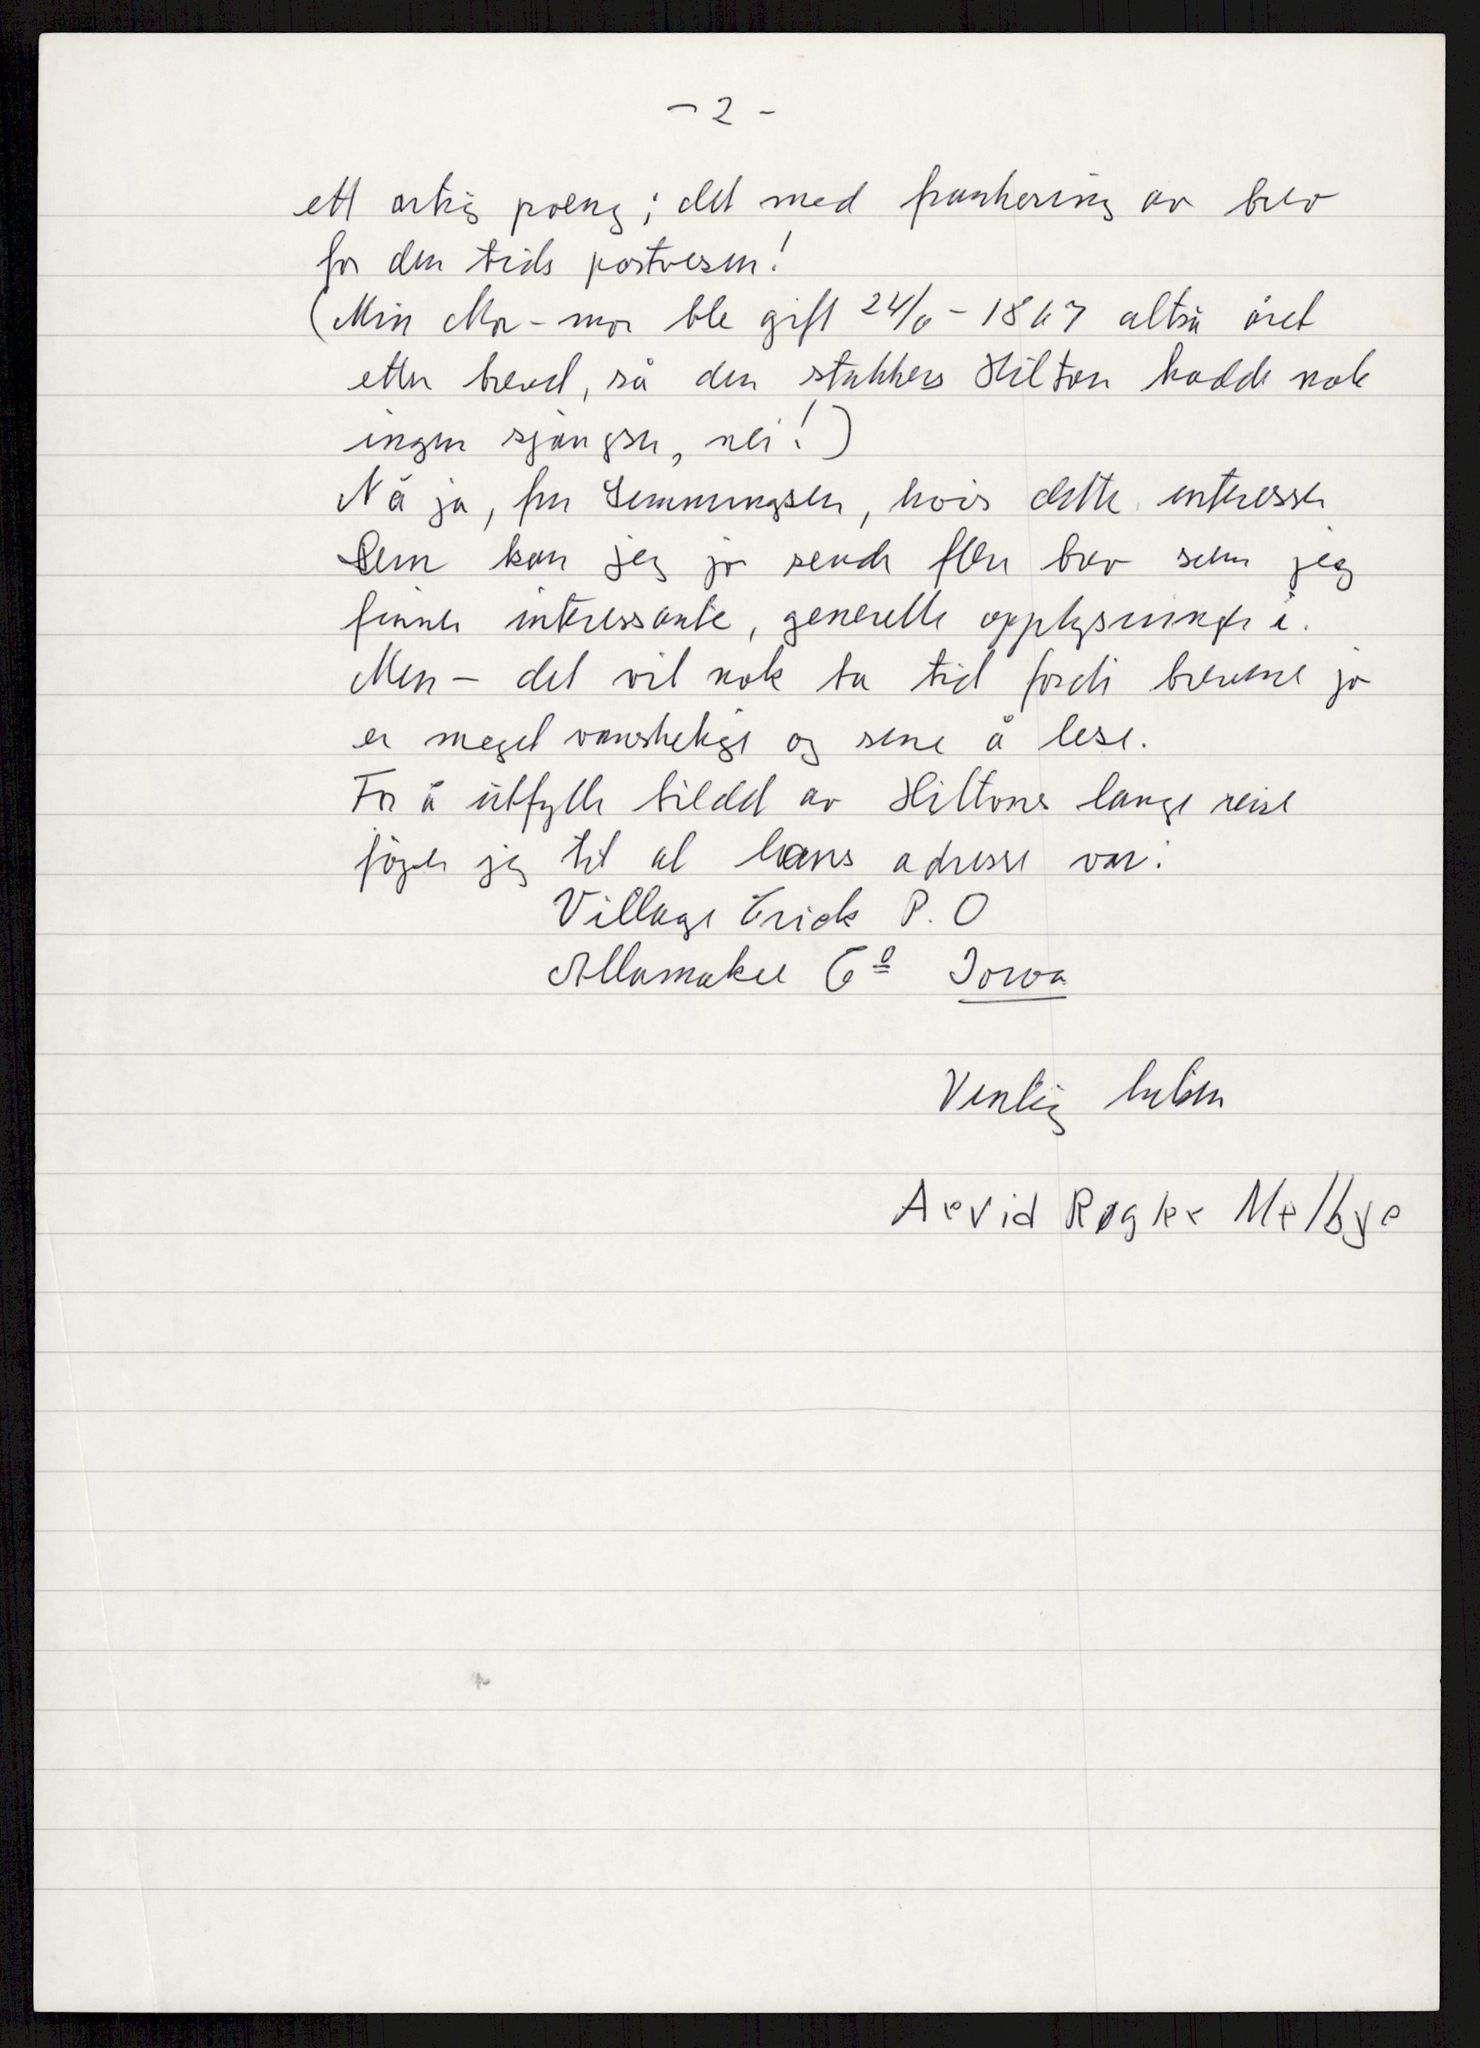 - 2 -
ett artig poeng; det med frankering av brev
for den tids postvesen!
(Min Mor-mor ble gift 24/6 - 1867 altså året
etter brevet, så den stakkers Hilton hadde nok
ingen sjangse, nei!)
Nå ja, fru Semmingsen, hvis dette interesser
Dem kan jeg jo sende flere brev som jeg
finner interessante, generelle opplysninger i.
Men - det vil nok ta tid fordi brevene jo
er meget vanskelige og sene å lese.
For å utfylle bildet av Hiltons lange reise
föyer jeg til at hans adresse var:
Village Crick P. O
Allamakee Co Iowa
Venlig hilsen
Arvid Melbye